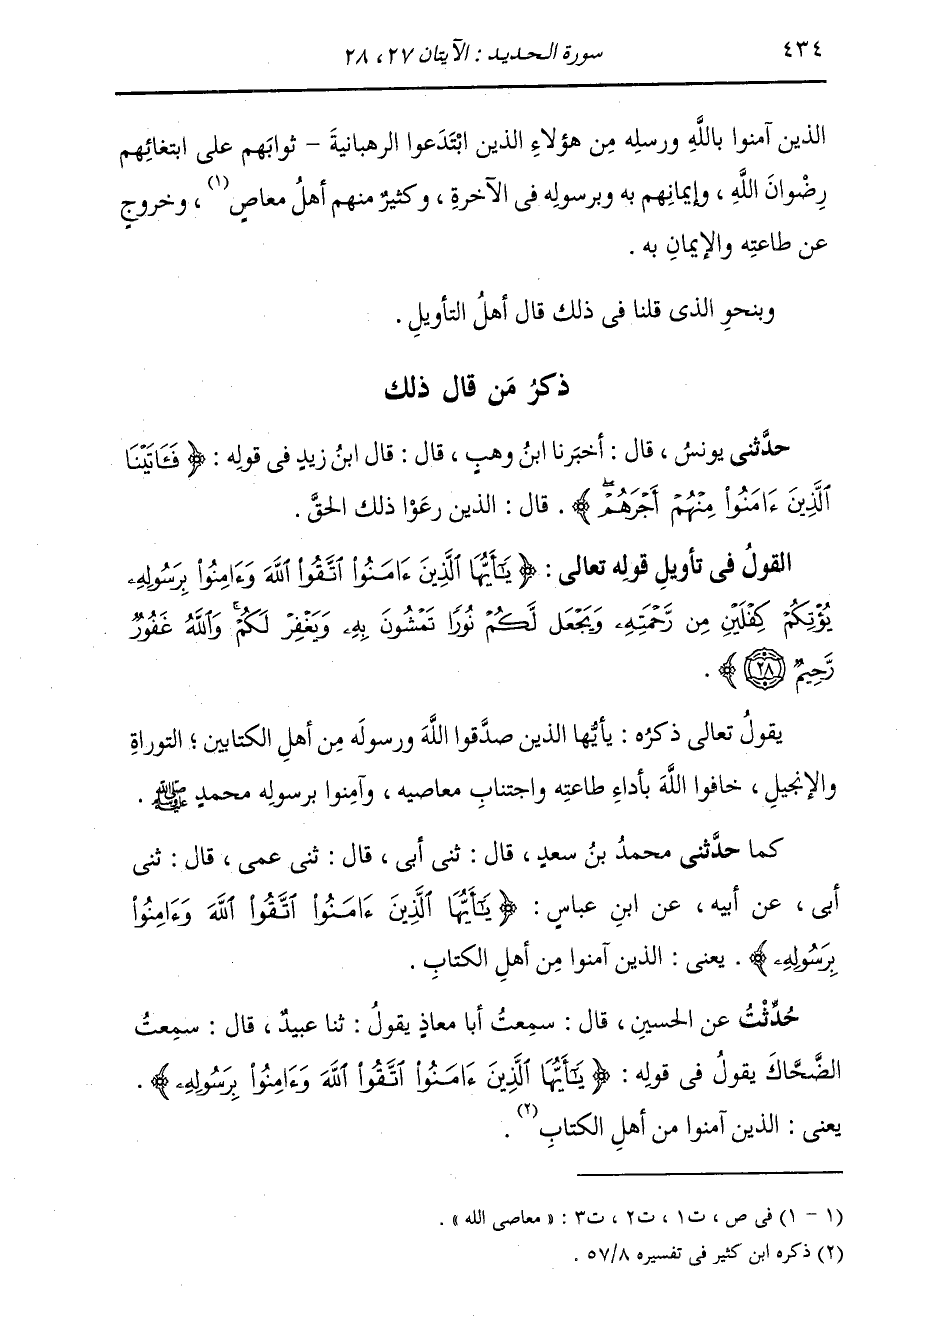 ٤٣٤
سورة الحديد : الآيتان ٢٧ ، ٢٨
الذين آمنوا باللَّهِ ورسلِه مِن هؤلاءِ الذين ابْتَدَعوا الرهبانيةَ – ثوابَهم على ابتغائِهم
رِضْوانَ اللَّهِ ، وإيمانِهم به وبرسولِه فى الآخرةِ ، وكثيرٌ منهم أهلُ معاصٍ(١) ، وخروجٍ
عن طاعتِه والإيمانِ به .
وبنحوِ الذى قلنا فى ذلك قال أهلُ التأويلِ .
ذكرُ مَن قال ذلك
حدَّثنى يونسُ ، قال : أخبَرنا ابنُ وهبٍ ، قال : قال ابنُ زيدٍ فى قولِه : ﴿ فَـَٔاتَيْنَا
ٱلَّذِينَ ءَامَنُوا۟ مِنْهُمْ أَجْرَهُمْ ۖ ﴾ . قال : الذين رعَوْا ذلك الحقَّ .
القولُ فى تأويلِ قولِه تعالى : ﴿ يَـٰٓأَيُّهَا ٱلَّذِينَ ءَامَنُوا۟ ٱتَّقُوا۟ ٱللَّهَ وَءَامِنُوا۟ بِرَسُولِهِۦ
يُؤْتِكُمْ كِفْلَيْنِ مِن رَّحْمَتِهِۦ وَيَجْعَل لَّكُمْ نُورًا تَمْشُونَ بِهِۦ وَيَغْفِرْ لَكُمْ ۚ وَٱللَّهُ غَفُورٌ
رَّحِيمٌ (٢٨) ﴾ .
يقولُ تعالى ذكرُه : يأيُّها الذين صدَّقوا اللَّهَ ورسولَه مِن أهلِ الكتابين ؛ التوراةِ
والإنجيلِ ، خافوا اللَّهَ بأداءِ طاعتِه واجتنابِ معاصيه ، وآمِنوا برسولِه محمدٍ ﷺ .
كما حدَّثنى محمدُ بنُ سعدٍ ، قال : ثنى أبى ، قال : ثنى عمى ، قال : ثنى
أبى ، عن أبيه ، عن ابنِ عباسٍ : ﴿ يَـٰٓأَيُّهَا ٱلَّذِينَ ءَامَنُوا۟ ٱتَّقُوا۟ ٱللَّهَ وَءَامِنُوا۟
بِرَسُولِهِۦ ﴾ . يعنى : الذين آمنوا مِن أهلِ الكتابِ .
حُدِّثْتُ عن الحسينِ ، قال : سمِعتُ أبا معاذٍ يقولُ : ثنا عبيدٌ ، قال : سمِعتُ
الضَّحَّاكَ يقولُ فى قولِه : ﴿ يَـٰٓأَيُّهَا ٱلَّذِينَ ءَامَنُوا۟ ٱتَّقُوا۟ ٱللَّهَ وَءَامِنُوا۟ بِرَسُولِهِۦ ﴾ .
يعنى : الذين آمنوا من أهلِ الكتابِ(٢) .
(١ – ١) فى ص ، ت١ ، ت٢ ، ت٣ : « معاصى الله » .
(٢) ذكره ابن كثير فى تفسيره ٥٧/٨ .